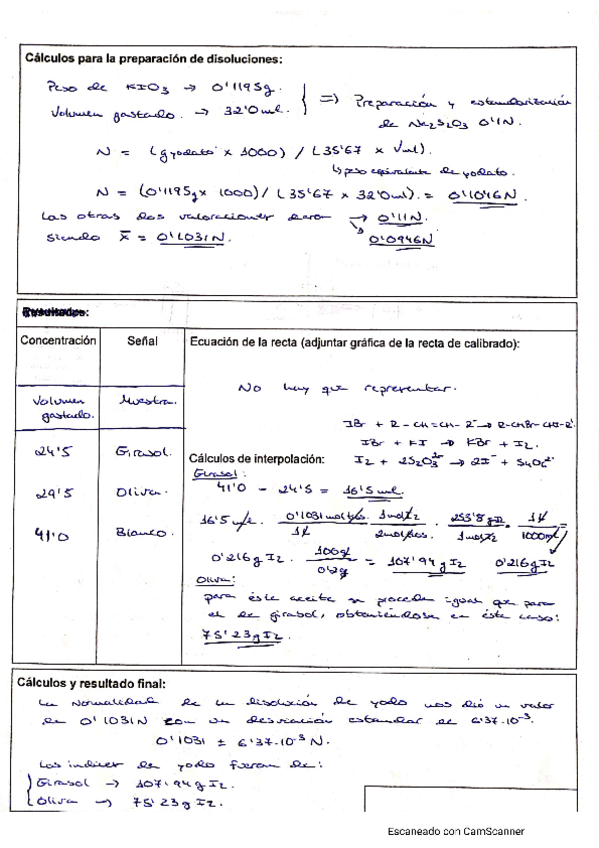 Cálculos para la preparación de disoluciones:
Peso de KIO3 → 0'1195g.
Volumen gastado. → 32'0 ml.
=> Preparación y estandarización
de Na2S2O3 0'1N.
N = (g yodato x 1000) / (35'67 x Vml).
↳ peso equivalente de yodato.
N = (0'1195g x 1000) / (35'67 x 32'0ml). = 0'1046N
Las otras dos valoraciones → 0'11N.
siendo x̄ = 0'1031N. ↘ 0'0946N
Resultados:
Concentración
Señal
Ecuación de la recta (adjuntar gráfica de la recta de calibrado):
Volumen gastado.
Muestra.
No hay que representar.
24'5
Girasol.
29'5
Oliva.
41'0
Blanco.
IBr + R-CH=CH-R' → R-CHBr-CHI-R'
IBr + KI → KBr + I2.
Cálculos de interpolación:
I2 + 2S2O3²⁻ → 2I⁻ + S4O6²⁻
Girasol:
41'0 - 24'5 = 16'5 ml.
16'5 ml. 0'1031 mol/1l · 1mol I2/2moles · 253'8 g I2/1mol I2 · 1l/1000ml =
0'216 g I2
0'216g I2. 100g/0'2g = 107'94 g I2
Oliva:
para éste aceite se procede igual que para
el de girasol, obteniéndose en éste caso:
75'23g I2.
Cálculos y resultado final:
La Normalidad de la disolución de yodo nos dió un valor
de 0'1031N con un desviación estandar de 6'37·10⁻³.
0'1031 ± 6'37·10⁻³ N.
Los indices de yodo fueron de:
Girasol → 107'94g I2.
Oliva → 75'23g I2.
Escaneado con CamScanner